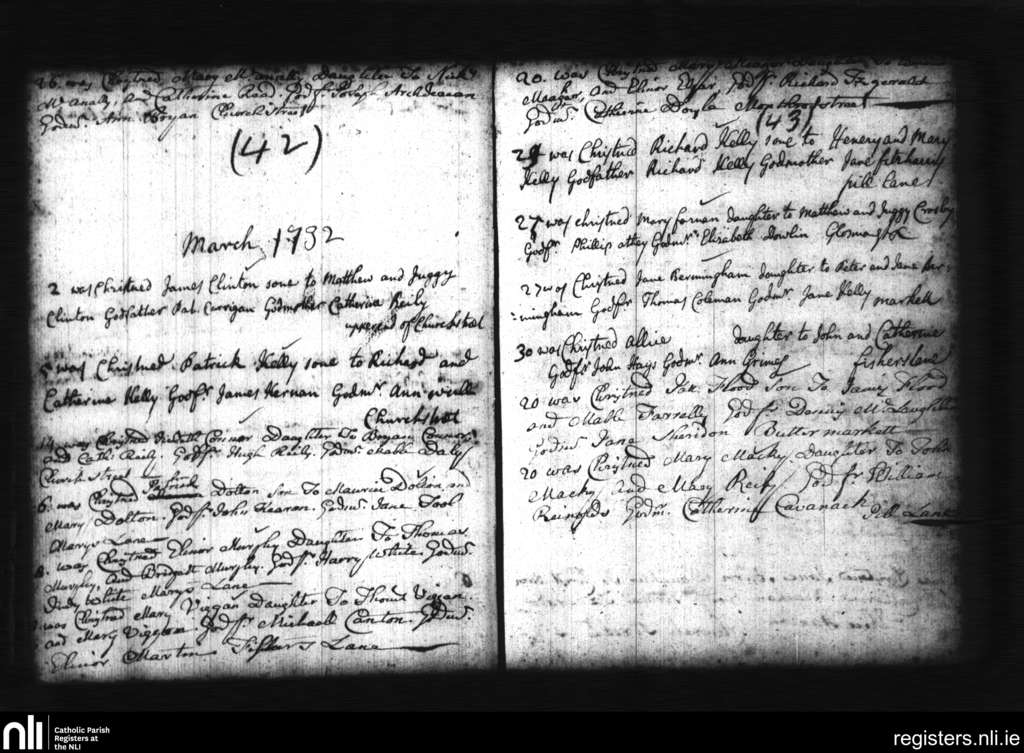 26 was Christned Mary McAnally Daughter To Nichs
McAnaly, and Catherine Reed. Godfr. Joseph Archdeacan
Godmr. Ann Bryan Church Street
(42)
March 1732
2 was Christned James Clinton sone to Matthew and Juggy
Clinton Godfather Pat. Carrigan Godmother Catherine Reily
uper end of Churchstreet
5 was Christned Patrick Kelly sone to Richard and
Catherine Kelly Godfr James Kernan Godmr. Ann
Churchstreet
14 was Christned Connor Daughter To Bryan Connor
and Cath: Reily. Godfr. Hugh Reily. Godmr. Mable Daly
Church Street Patrick
6. was Christned Dolton Son To Maurice Dolton and
Mary Dolton. Godfr. John Kearan. Godmr. Jane Tool
Marys Lane
8. was Christned Elinor Murphy Daughter To Thomas
Murphy, and Bridget Murphy. Godfr. Harry White. Godmr.
White Marys Lane
was Christned Mary Daughter To
and Mary Godfr. Michaell Canton. Godmr.
Elinor Marton Fishers Lane
20. was Christned Mary Meagar Daughter To
Meagar, and Elinor Godfr. Richard
Godmr. Catherine Doyle
(43)
24 was Christned Richard Kelly sone to Henery and Mary
Kelly Godfather Richard Kelly Godmother Jane fitzharris
pill lane
27 was christned Mary farnan daughter to Matthew and Juggy Crosby
Godfr. Phillip Godmr. Elizabeth Dowlin
27 was Christned Jane Bermingham daughter to Peter and Jane Ber:
:mingham Godfr Thomas Coleman Godmr. Jane Kelly markett
30 was Christned Allice daughter to John and Catherine
Godfr John Hays Godmr. Ann Grimes fisherslane
20 was Christned Flood Son To James Flood
and Mable Farrelly Godfr. McLaughlin
Godmr. Jane Sheridon Butter markett
20 was Christned Mary Macky. Daughter To John
Macky and Mary Reily Godfr William
Reinolds Godmr. Catherine Cavanack
Pill Lane
nli
Catholic Parish
Registers at
the NLI
registers.nli.ie